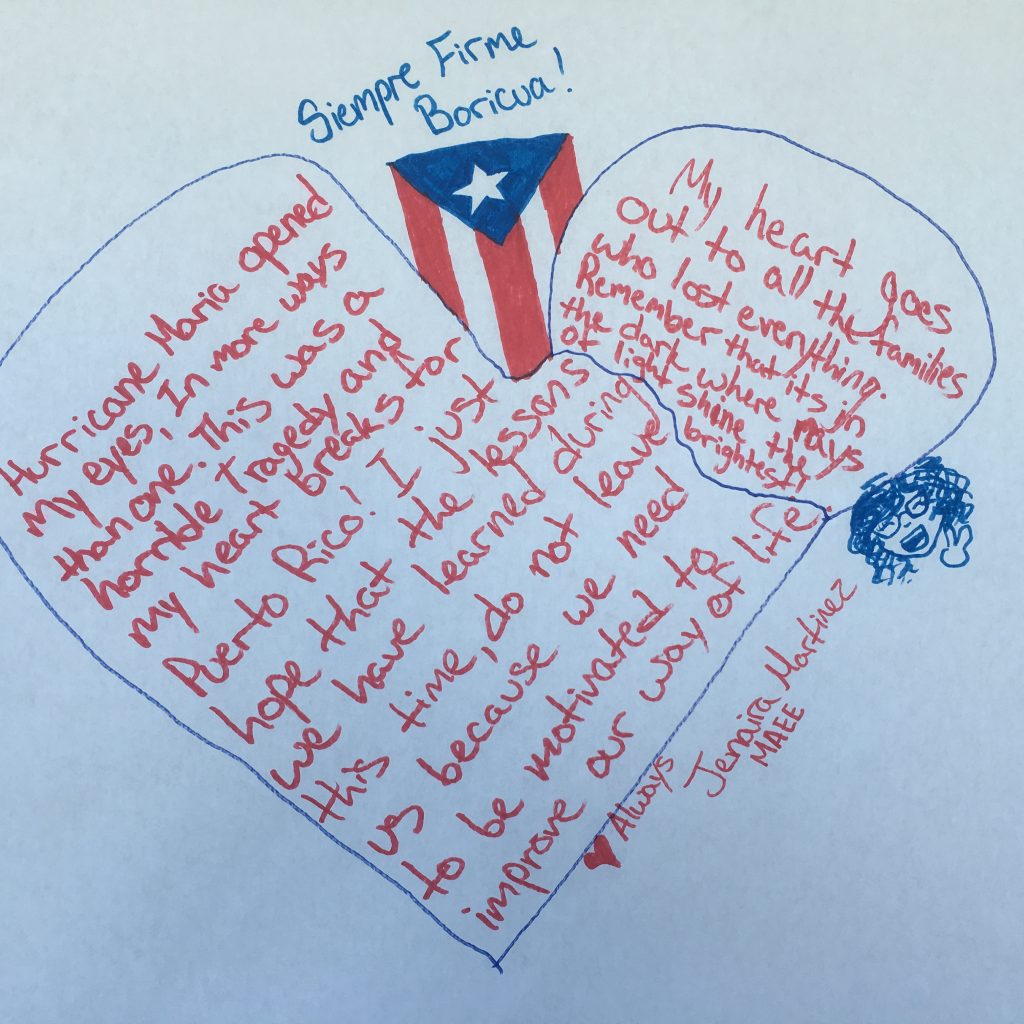 Siempre Firme
Boricua!
Hurricane Maria opened
my eyes, In more ways
than one. This was a
horrible tragedy and
my heart breaks for
Puerto Rico! I just
hope that the lessons
we have learned during
this time, do not leave
us because we need
to be motivated to
improve our way of life.
My heart goes
out to all the families
who lost everything.
Remember that its in
the dark where rays
of light shine the
brightest!
Always
Jenaira Martinez
MAEE